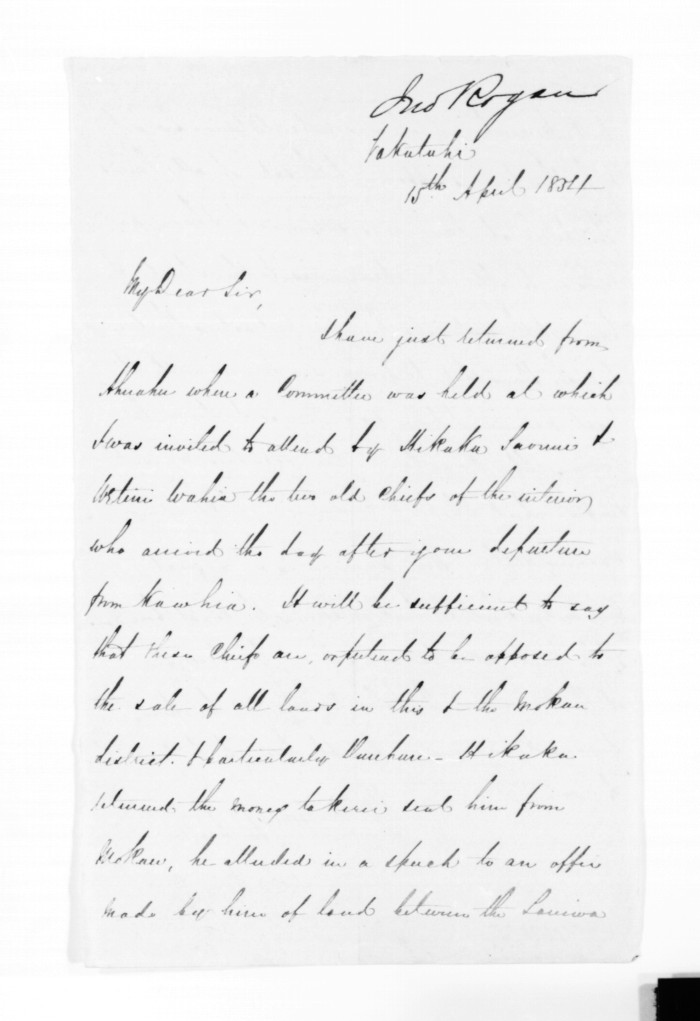 Jno Rogan
15th April 1854
My Dear Sir,
I have just returned from
Ahuahu where a Committee was held at which
I was invited to attend by Hikaka Taonui &
Wetini Wahia the two old Chiefs of the interior,
who arrived the day after your departure
from Kawhia. It will be sufficient to say
that these Chiefs are, or pretend to be opposed to
the sale of all lands in this & the Mokau
district. & particularly - Hikaka
returned the money Takerei sent him from
Mokau, he alluded in a speech to an offer
made by him of land between the Taniwa